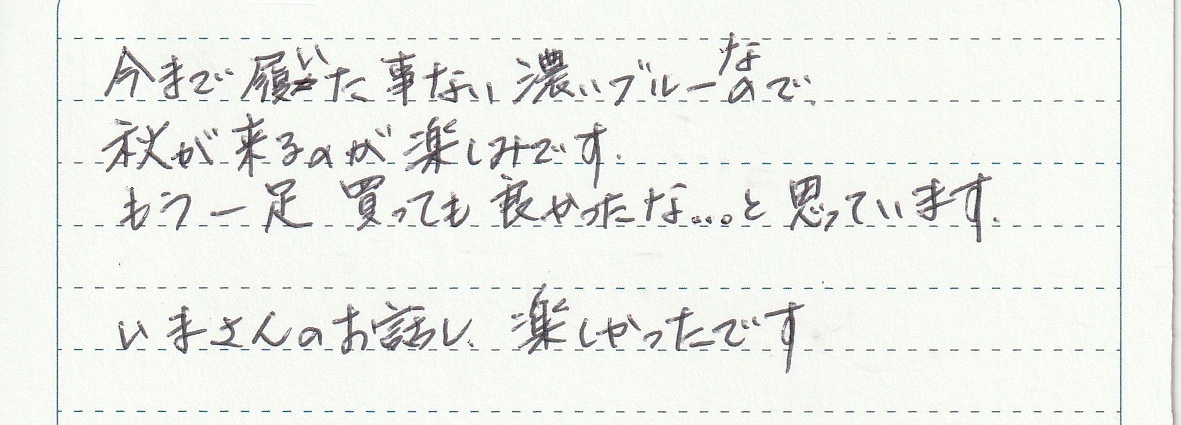 今まで履いた事ない濃いブルーなので、
秋が来るのが楽しみです.
もう一足 買っても良かったな...。と思っています.
いまさんのお話し、楽しかったです